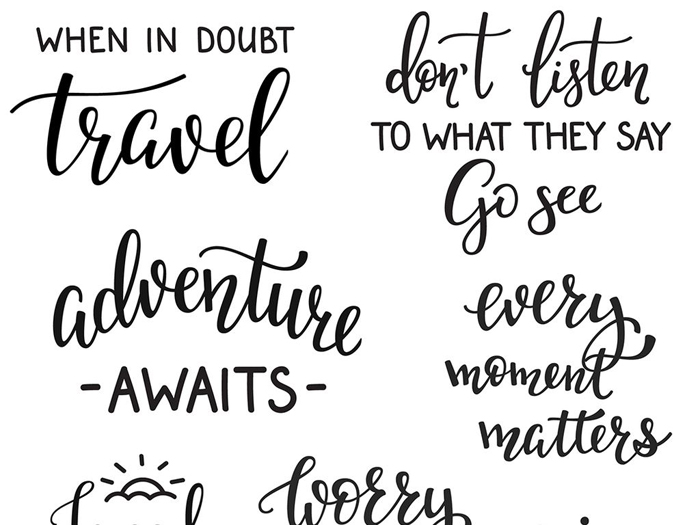 WHEN IN DOUBT
travel
don't listen
TO WHAT THEY SAY
Go see
adventure
-AWAITS-
every
moment
matters
worry